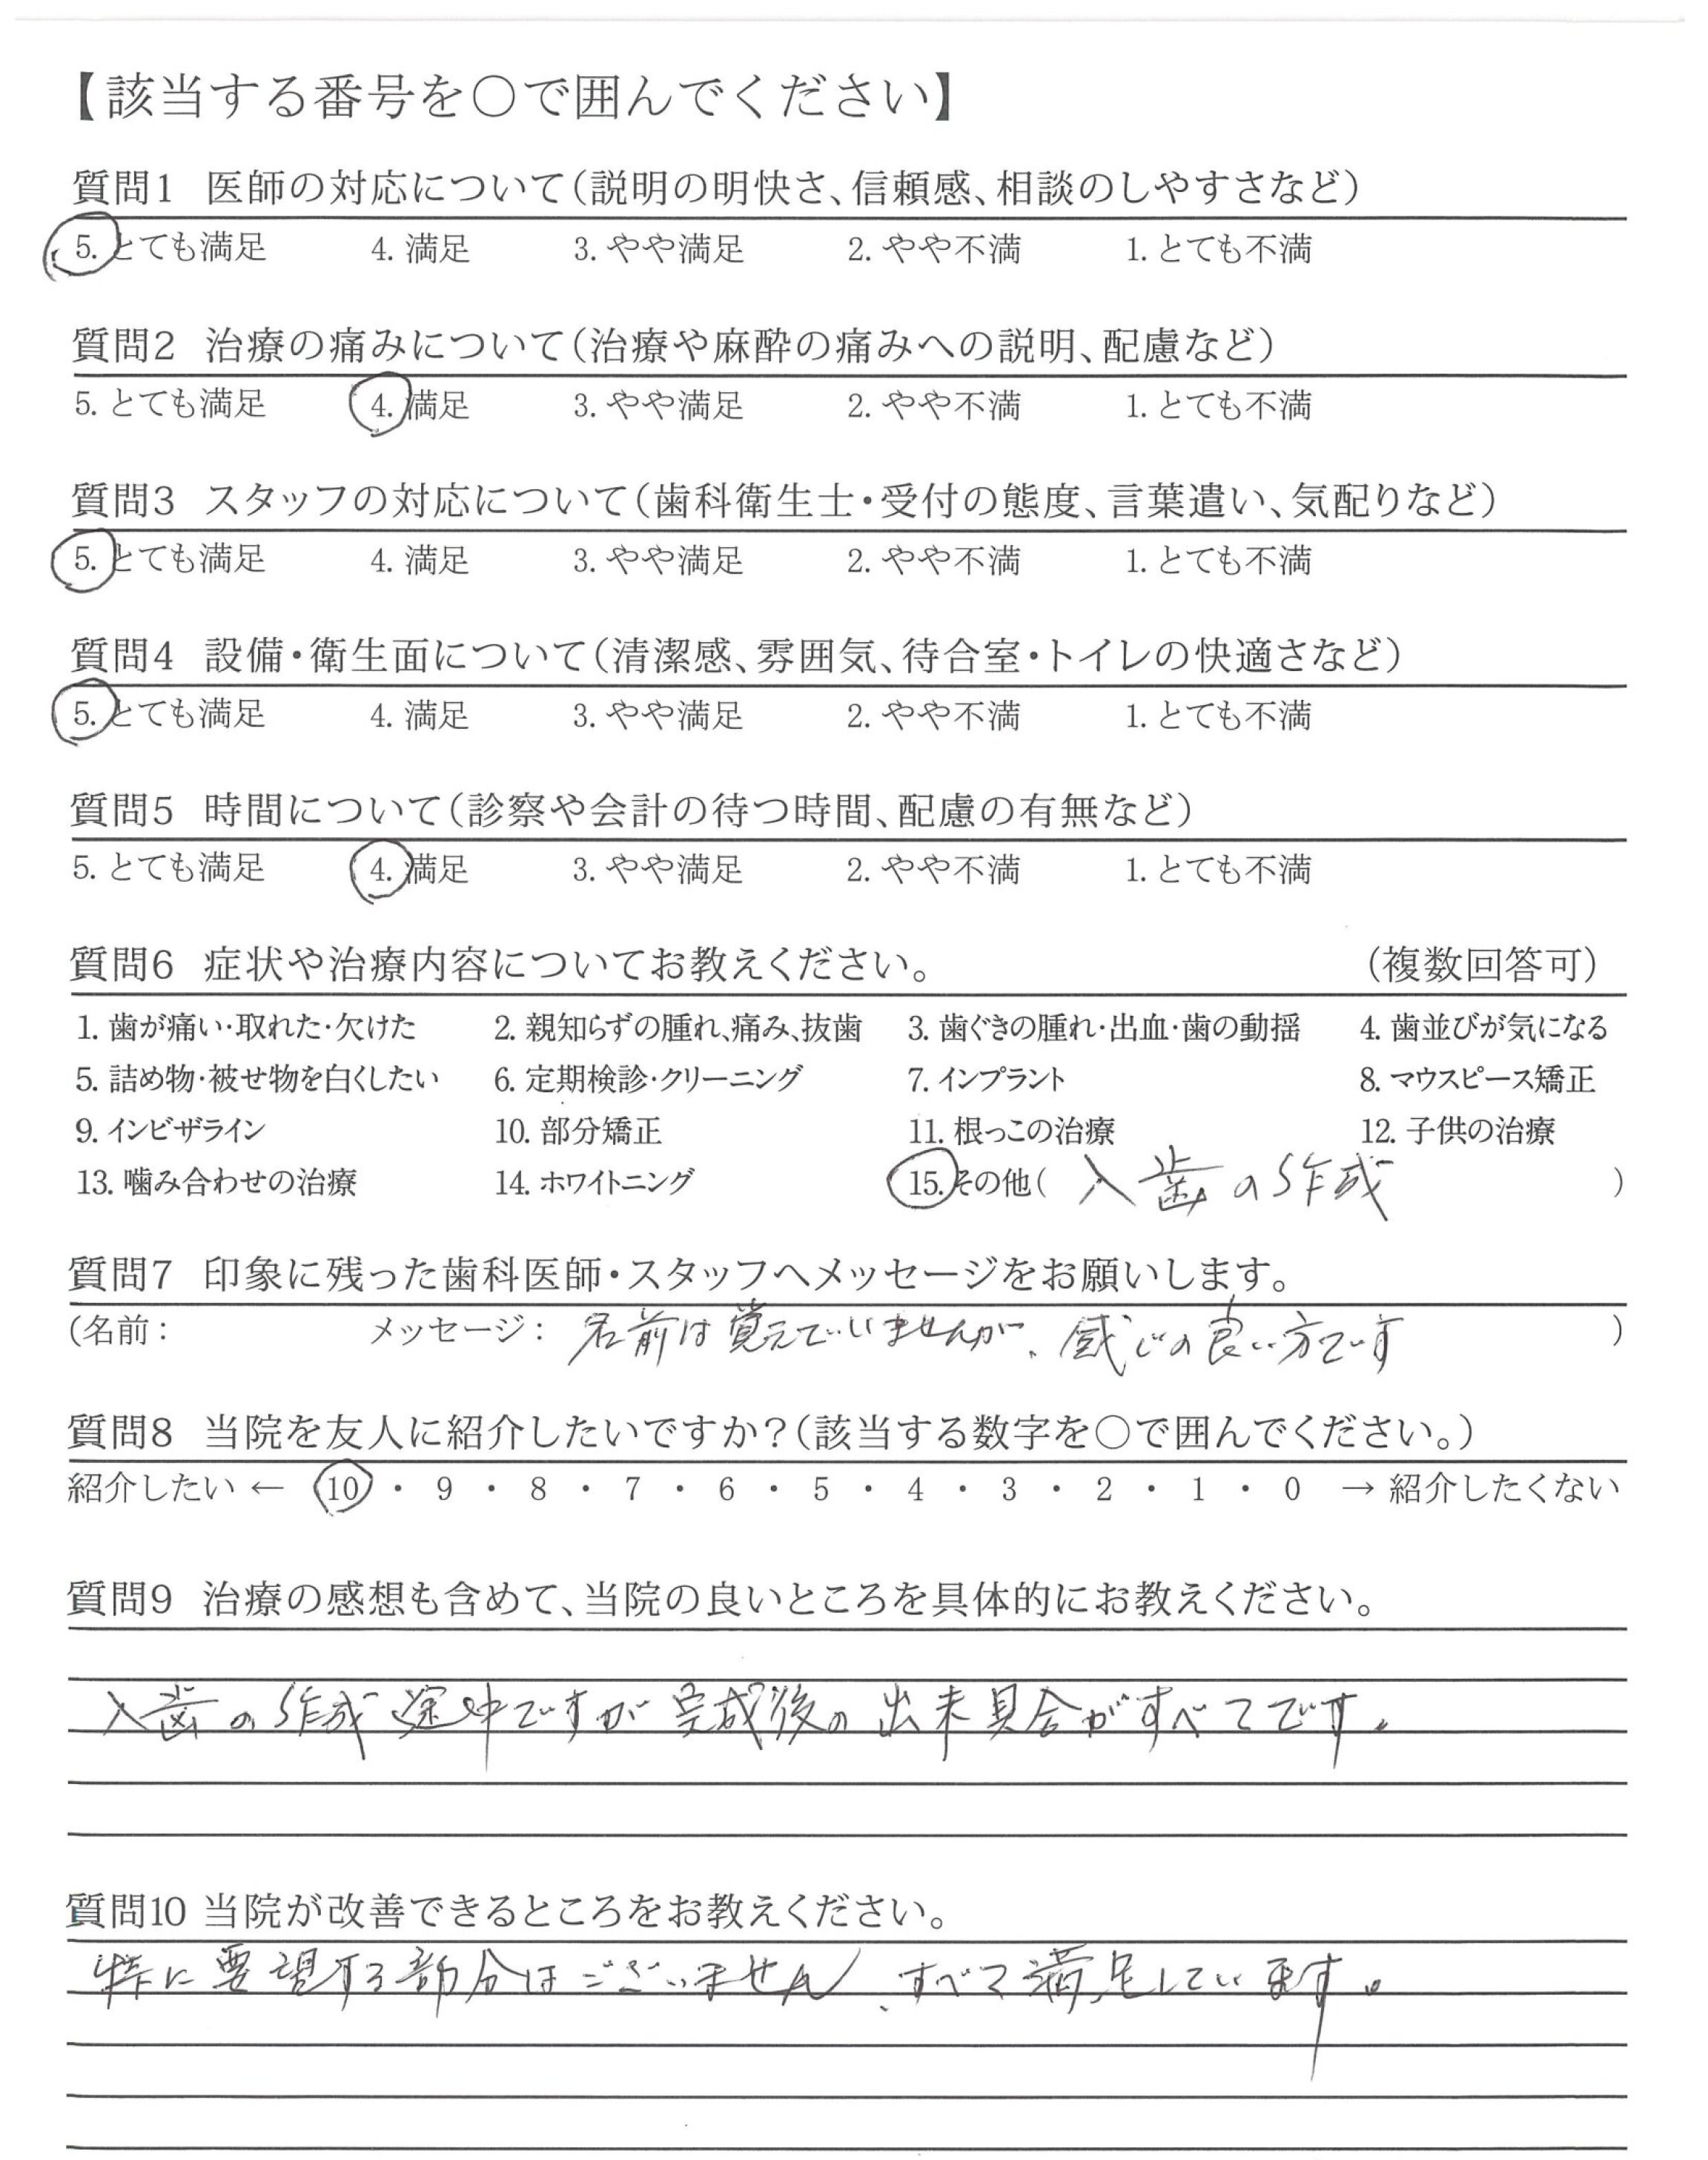 【該当する番号を〇で囲んでください】
質問1 医師の対応について(説明の明快さ、信頼感、相談のしやすさなど)
5. とても満足 4. 満足 3. やや満足 2. やや不満 1. とても不満
質問2 治療の痛みについて(治療や麻酔の痛みへの説明、配慮など)
5. とても満足 4. 満足 3. やや満足 2. やや不満 1. とても不満
質問3 スタッフの対応について(歯科衛生士・受付の態度、言葉遣い、気配りなど)
5. とても満足 4. 満足 3. やや満足 2. やや不満 1. とても不満
質問4 設備・衛生面について(清潔感、雰囲気、待合室・トイレの快適さなど)
5. とても満足 4. 満足 3. やや満足 2. やや不満 1. とても不満
質問5 時間について(診察や会計の待つ時間、配慮の有無など)
5. とても満足 4. 満足 3. やや満足 2. やや不満 1. とても不満
質問6 症状や治療内容についてお教えください。 (複数回答可)
1. 歯が痛い・取れた・欠けた 2. 親知らずの腫れ、痛み、抜歯 3. 歯ぐきの腫れ・出血・歯の動揺 4. 歯並びが気になる
5. 詰め物・被せ物を白くしたい 6. 定期検診・クリーニング 7. インプラント 8. マウスピース矯正
9. インビザライン 10. 部分矯正 11. 根っこの治療 12. 子供の治療
13. 噛み合わせの治療 14. ホワイトニング 15. その他( 入歯の作成 )
質問7 印象に残った歯科医師・スタッフへメッセージをお願いします。
(名前: メッセージ: 名前は覚えていませんが、感じの良い方です )
質問8 当院を友人に紹介したいですか?(該当する数字を〇で囲んでください。)
紹介したい ← 10 ・ 9 ・ 8 ・ 7 ・ 6 ・ 5 ・ 4 ・ 3 ・ 2 ・ 1 ・ 0 → 紹介したくない
質問9 治療の感想も含めて、当院の良いところを具体的にお教えください。
入歯の作成途中ですが完成後の出来具合がすべてです。
質問10 当院が改善できるところをお教えください。
特に要望する部分はございません、すべて満足しています。